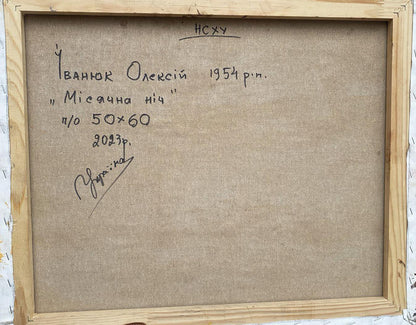 НСХУ
Їванюк Олексій 1954 р.п.
„Місячна ніч"
п/о 50×60
2023р.
Україна